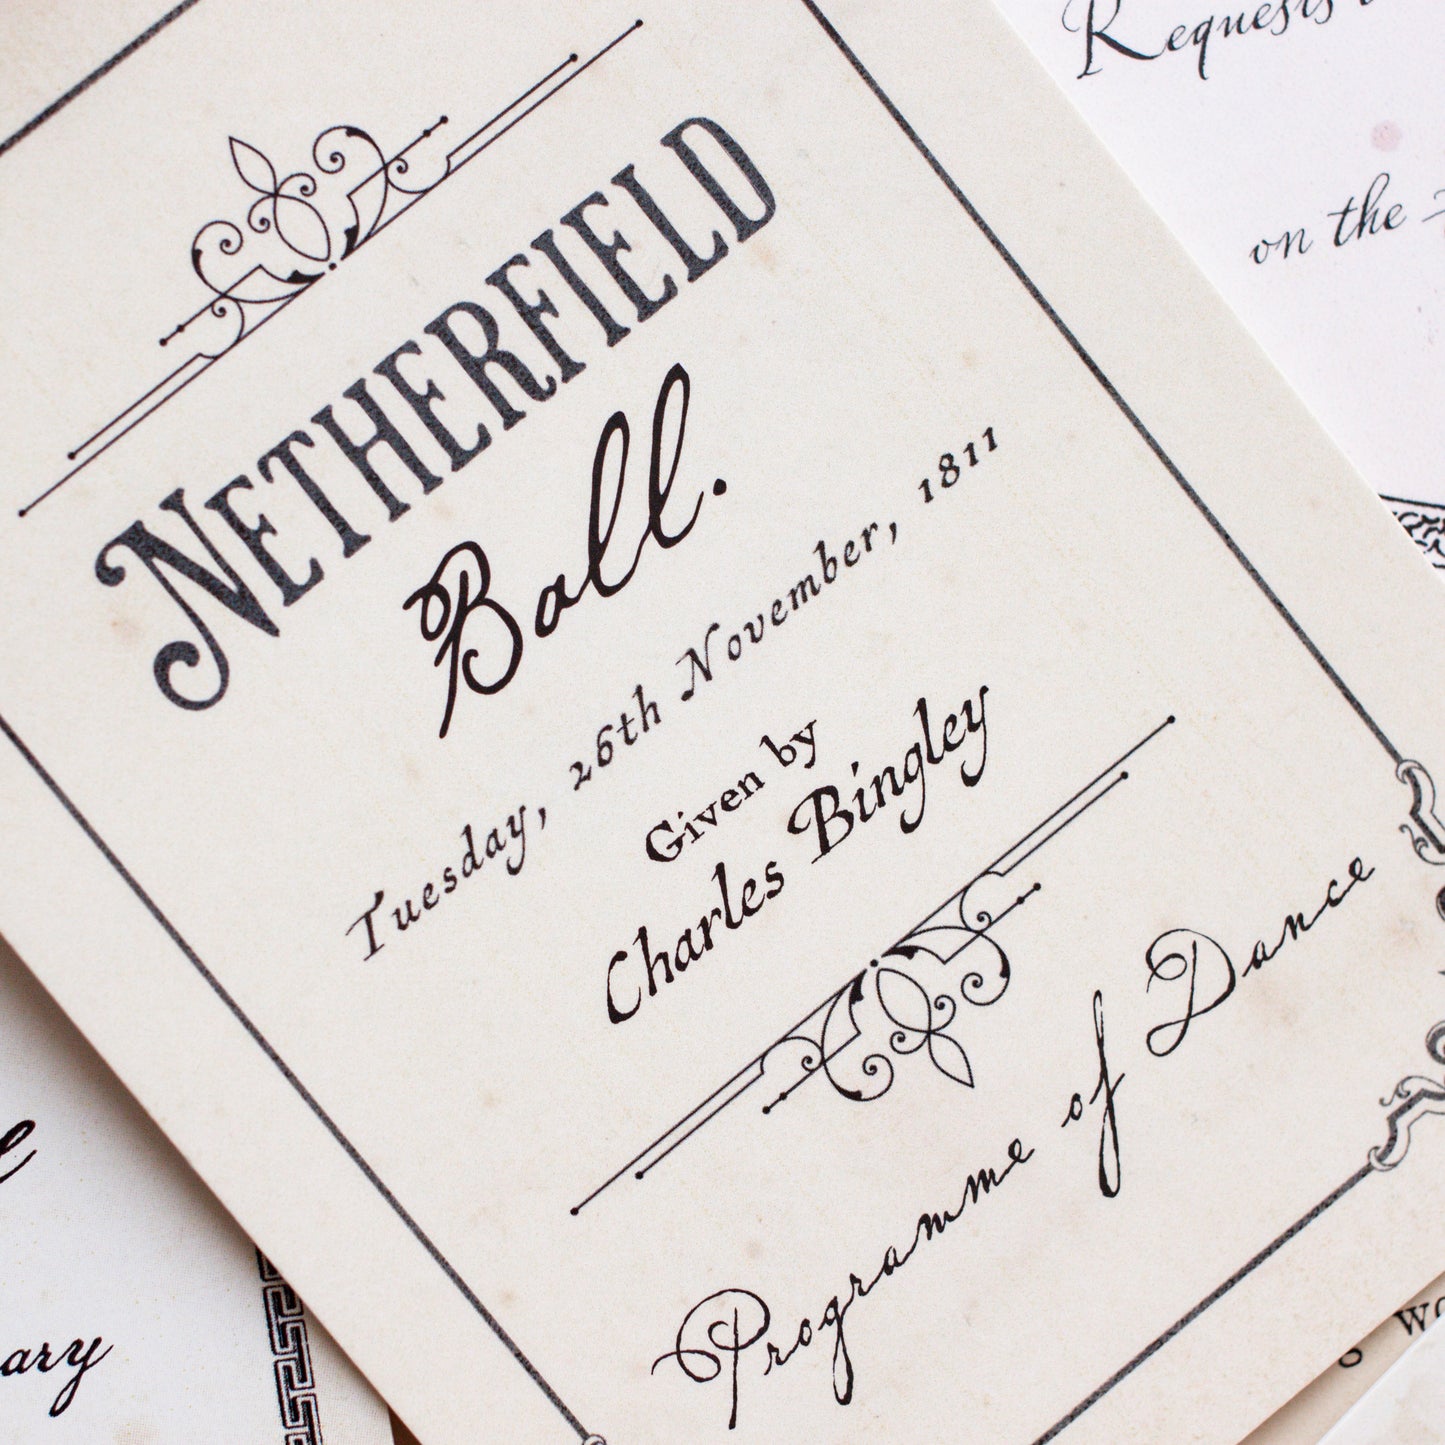 NETHERFIELD
Ball.
Tuesday, 26th November, 1811
Given by
Charles Bingley
Programme of Dance
Requests
on the